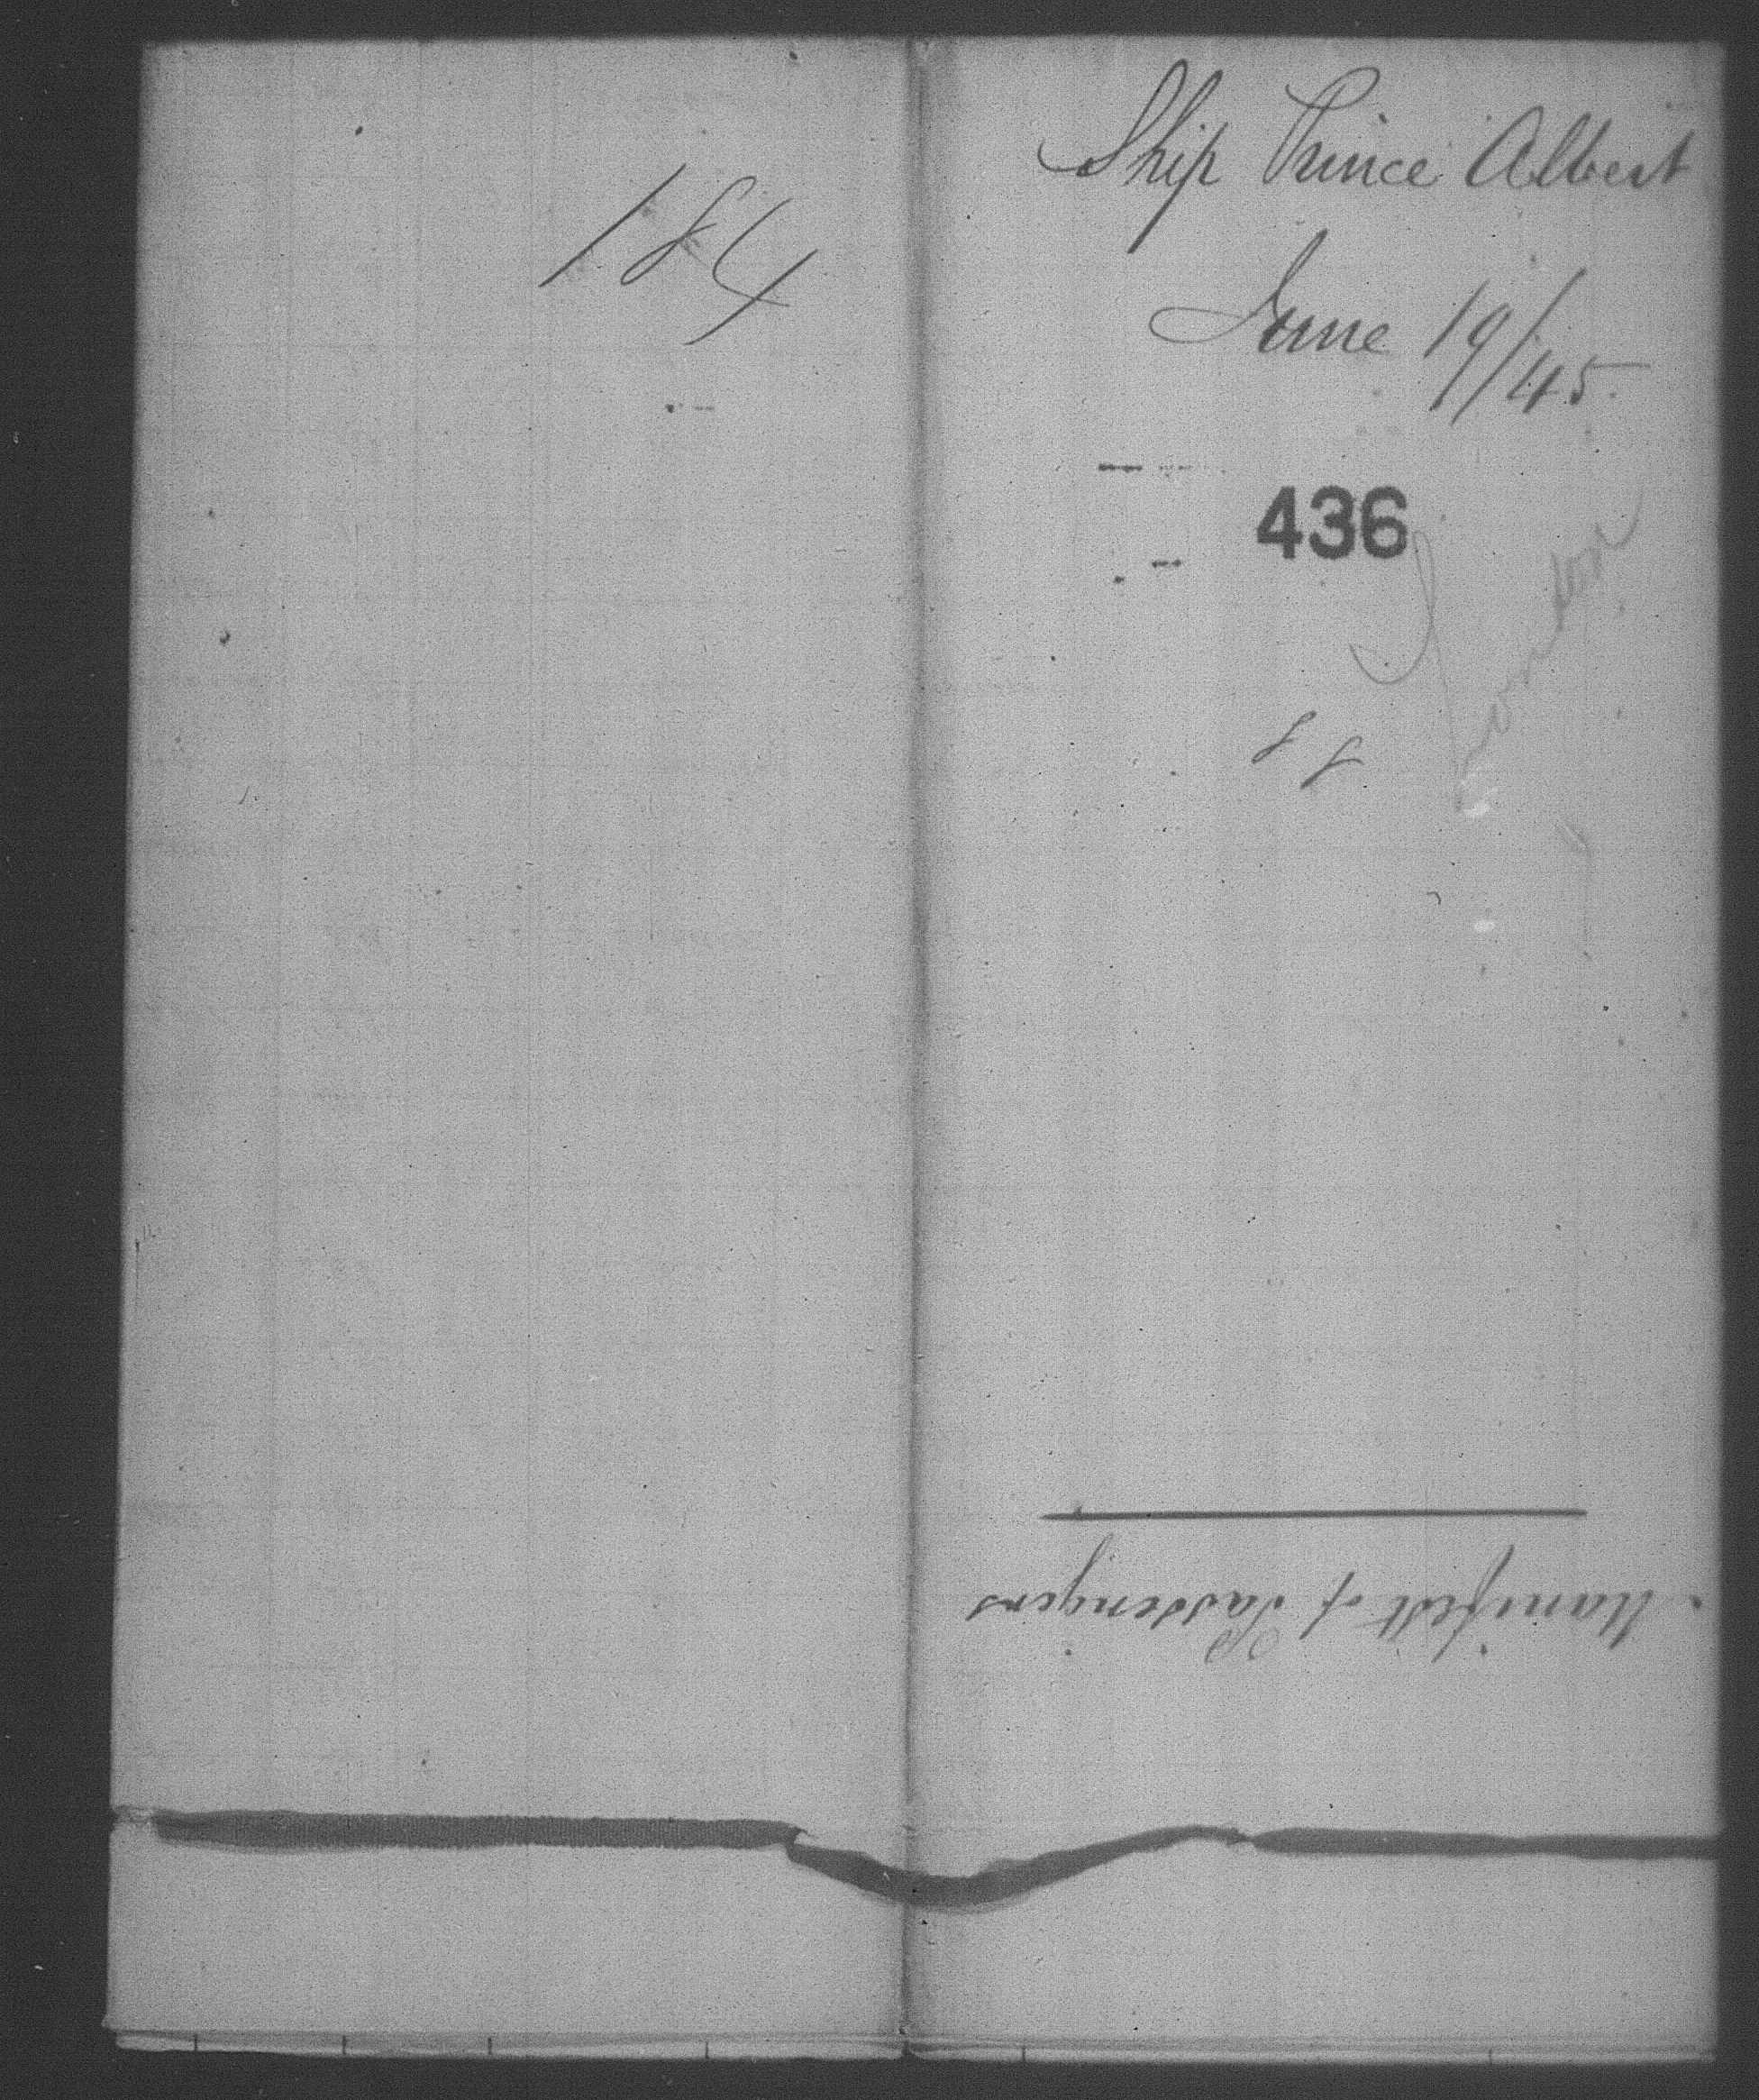 184
Ship Prince Albert
June 19/45
436
London
88
Manifest of Passengers